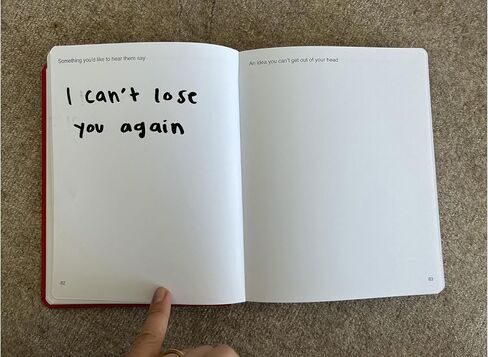 Something you'd like to hear them say
I can't lose
you again
82
An idea you can't get out of your head
83